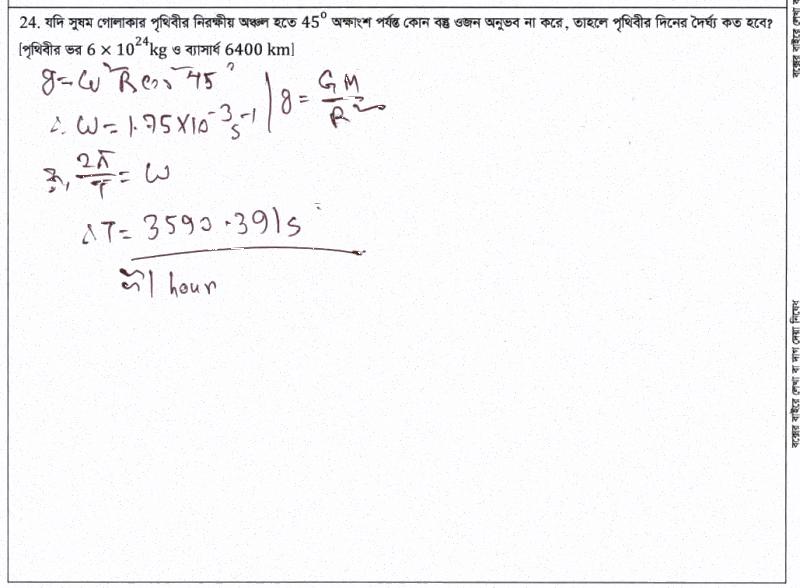 24. যদি সুষম গোলাকার পৃথিবীর নিরক্ষীয় অঞ্চল হতে 45° অক্ষাংশ পর্যন্ত কোন বস্তু ওজন অনুভব না করে, তাহলে পৃথিবীর দিনের দৈর্ঘ্য কত হবে?
[পৃথিবীর ভর 6 × 10²⁴kg ও ব্যাসার্ধ 6400 km]
g = ω²R cos² 45° | g = GM/R²
∴ ω = 1.75×10⁻³ s⁻¹
বা, 2π/T = ω
∴ T = 3590.391s
≈ 1 hour
বক্সের বাইরে লেখা বা দাগ দেয়া নিষেধ
বক্সের বাইরে লেখা ব